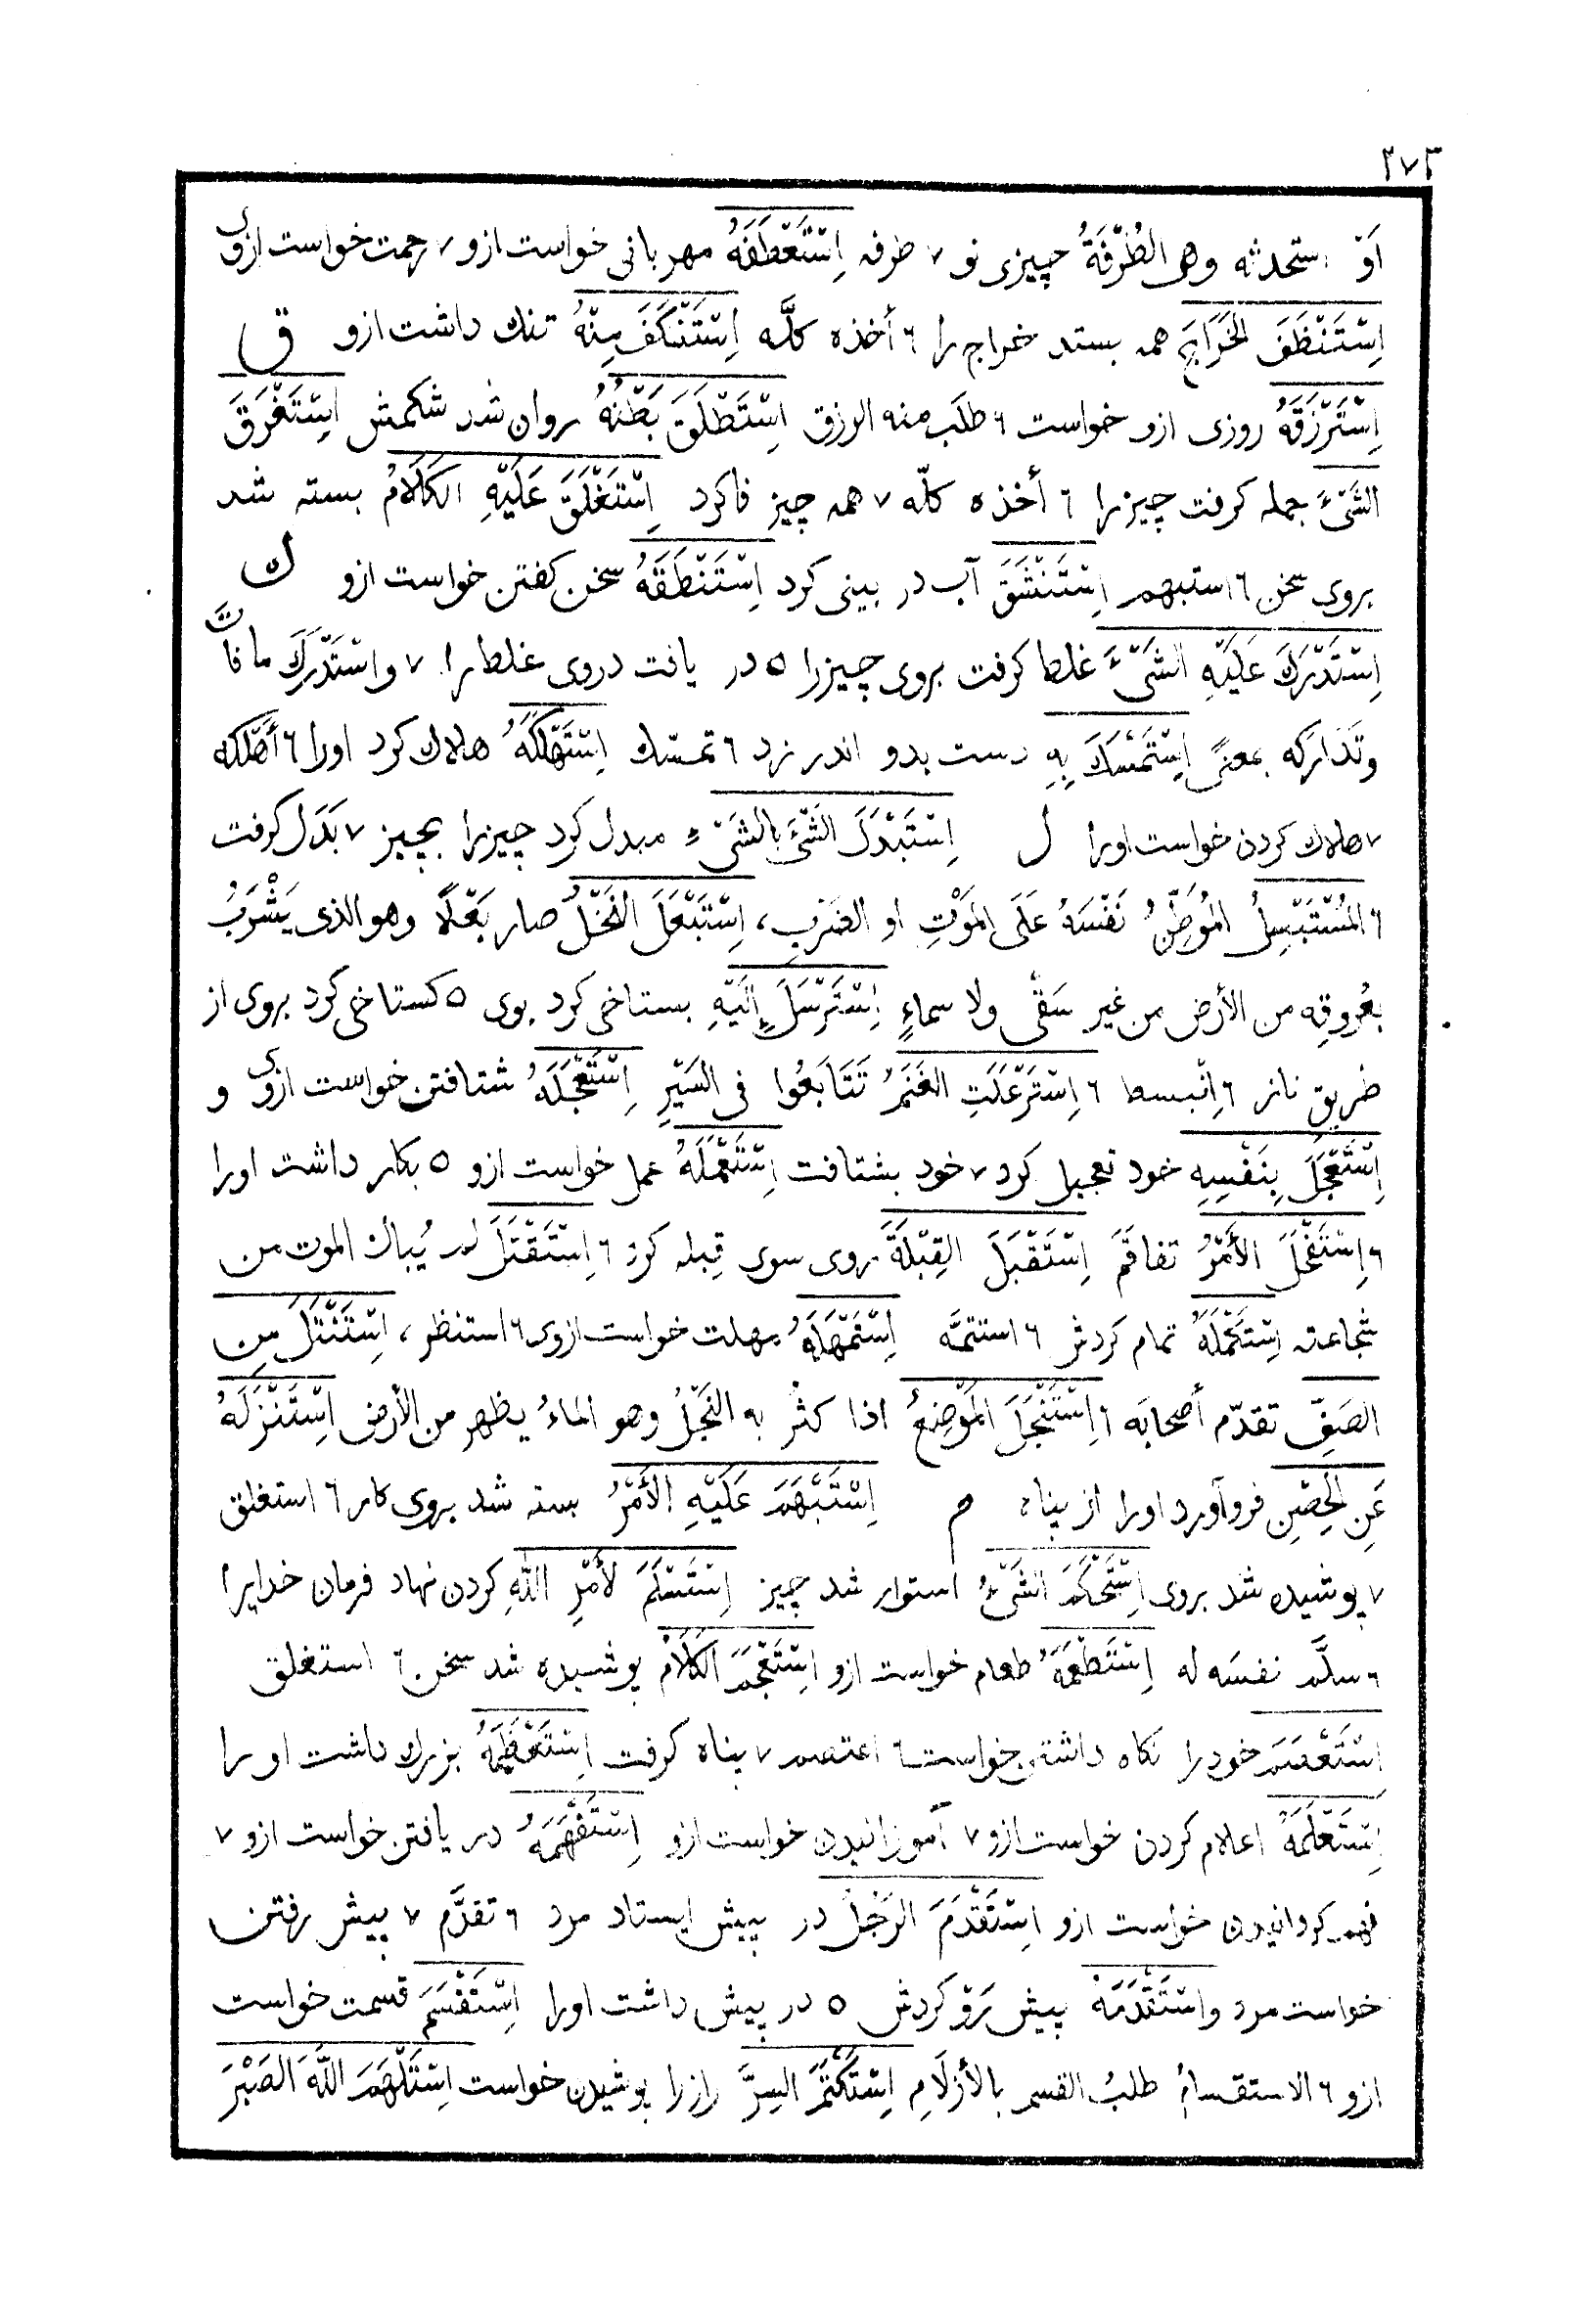 ٢٧٣
اَوْ استحدثه وهى الطُرْفَةُ چیزی نو ٧ طرفه اِسْتَعْطَفَهُ مهربانی خواست ازو ٧ رحمت خواست ازوی
اِسْتَنْظَفَ الخَرَاجَ همه بستد خراج را ٦ أخذه کلَّه اِسْتَنْكَفَ مِنْهُ ننك داشت ازو ق
اِسْتَرْزَقَهُ روزی ازو خواست ٦ طلَب منه الرزق اِسْتَطْلَقَ بَطْنُهُ روان شد شکمش اِسْتَغْرَقَ
الشَىْءَ جمله کرفت چیزرا ٦ أخذه کلّه ٧ همه چیز فاکرد اِسْتَغْلَقَ عَلَيْهِ الكَلَامُ بسته شد
بروی سخن ٦ استبهم اِسْتَنْشَقَ آب در بینی کرد اِسْتَنْطَقَهُ سخن کفتن خواست ازو ك
اِسْتَدْرَكَ عَلَيْهِ الشَىْءَ غلط کرفت بروی چیزرا ٥ در یافت دروی غلط را ٧ واسْتَدْرَكَ ما فاتَ
وتَدَارَكه بمعنًى اِسْتَمْسَكَ بِهِ دست بدو اندر زد ٦ تمسّك اِسْتَهْلَكَهُ هلاك کرد اورا ٦ أهْلكه
٧ هلاك کردن خواست اورا ل اِسْتَبْدَلَ الشَىْءَ بالشَىْءِ مبدل کرد چیزرا بچیز ٧ بَدَل کرفت
٦ المُسْتَبْسِلُ المُوَطِّنُ نَفْسَهُ عَلَى المَوْتِ او الضَرْبِ، اِسْتَبْعَلَ النَخْلُ صار بَعْلًا وهو الذى يَشْرَبُ
بعُروقِه من الأرض من غير سَقْىٍ ولا سماءٍ اِسْتَرْسَلَ إلَيْهِ بستاخی کرد بوی ٥ کستاخی کرد بروی از
طریق ناز ٦ اِنْبسط ٦ اِسْتَرْعَلَتِ الغَنَمُ تَتَابَعُوا فى السَيْرِ اِسْتَعْجَلَهُ شتافتن خواست ازوی و
اِسْتَعْجَلَ بِنَفْسِهِ خود تعجیل کرد ٧ خود بشتافت اِسْتَعْمَلَهُ عمل خواست ازو ٥ بکار داشت اورا
٦ اِسْتَفْحَلَ الأَمْرُ تفاقَمَ اِسْتَقْبَلَ القِبْلَةَ روی سوی قِبله کرد ٦ اِسْتَقْتَلَ لم يُبالِ الموت من
شجاعته اِسْتَكْمَلَهُ تمام کردش ٦ استتمّه اِسْتَمْهَلَهُ مهلت خواست ازوی ٦ استنظر، اِسْتَنْتَلَ مِن
الصَفِّ تقدّم أصحابَه ٦ اِسْتَنْجَلَ المَوْضِعُ اذا كثُر به النَجْلُ وهو الماءُ يظهر من الأرض اِسْتَنْزَلَهُ
عَنِ الحِصْنِ فروآورد اورا از پناه م اِسْتَبْهَمَ عَلَيْهِ الأَمْرُ بسته شد بروی کار ٦ استغلق
٧ پوشیده شد بروی اِسْتَحْكَمَ الشَىْءُ استوار شد چیز اِسْتَسْلَمَ لأمْرِ اللهِ کردن نهاد فرمان خدایرا
٦ سلَّم نفسَه له اِسْتَطْعَمَهُ طعام خواست ازو اِسْتَعْجَمَ الكَلَامُ پوشیده شد سخن ٦ استغلق
اِسْتَعْصَمَ خودرا نکاه داشتن خواست ٦ اعتصم ٧ پناه کرفت اِسْتَعْظَمَهُ بزرك داشت او را
اِسْتَعْلَمَهُ اعلام کردن خواست ازو ٧ آموزانیدن خواست ازو اِسْتَفْهَمَهُ در یافتن خواست ازو ٧
فهم کردانیدن خواست ازو اِسْتَقْدَمَ الرَجُلُ در پیش ایستاد مرد ٦ تقدَّم ٧ پیش رفتن
خواست مرد واسْتَقْدَمَهُ پیش رَوْ کردش ٥ در پیش داشت اورا اِسْتَقْسَمَ قسمت خواست
ازو ٦ الاستقسامُ طلبُ القسم بالأزلَامِ اِسْتَكْتَمَ السِرَّ رازرا پوشیدن خواست اِسْتَلْهَمَ اللّٰهَ الصَبْرَ